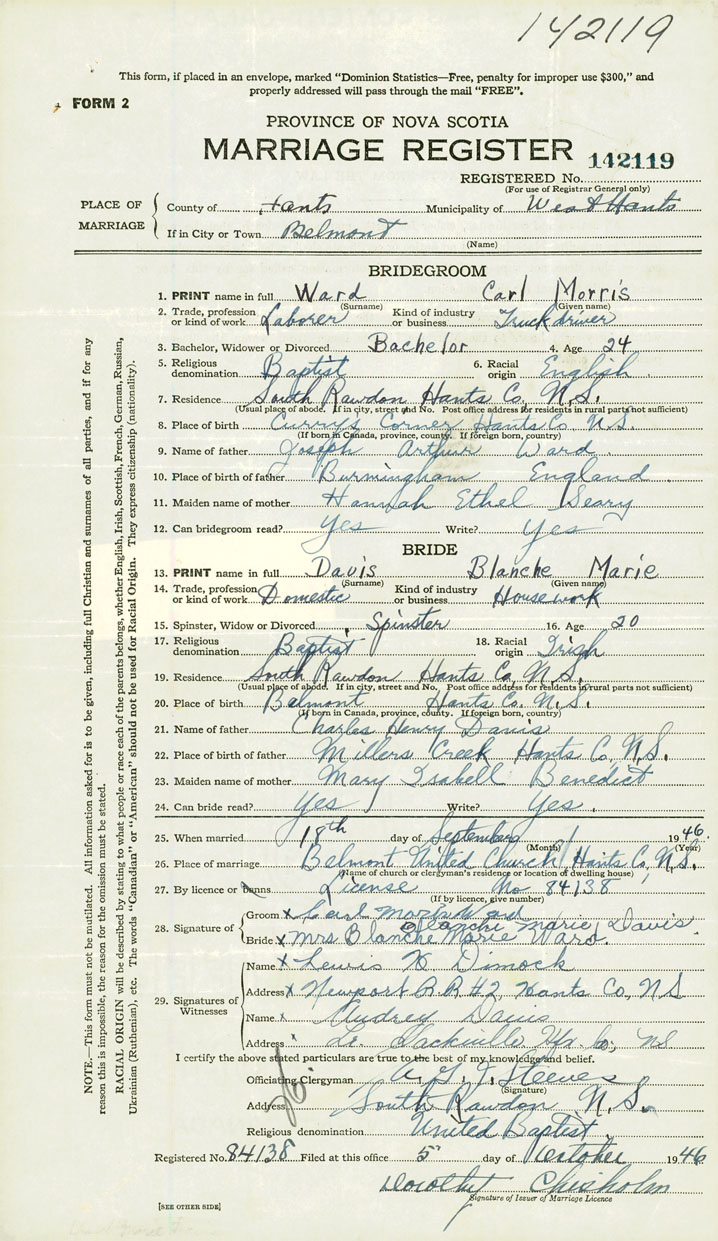 142119
This form, if placed in an envelope, marked "Dominion Statistics—Free, penalty for improper use $300," and
properly addressed will pass through the mail "FREE".
FORM 2
PROVINCE OF NOVA SCOTIA
MARRIAGE REGISTER 142119
REGISTERED No.
(For use of Registrar General only)
PLACE OF MARRIAGE
County of Hants Municipality of West Hants
If in City or Town Belmont
(Name)
BRIDEGROOM
1. PRINT name in full Ward Carl Morris
(Surname) (Given name)
2. Trade, profession or kind of work Laborer Kind of industry or business Truck driver
3. Bachelor, Widower or Divorced Bachelor 4. Age 24
5. Religious denomination Baptist 6. Racial origin English
7. Residence South Rawdon Hants Co. N.S.
(Usual place of abode. If in city, street and No. Post office address for residents in rural parts not sufficient)
8. Place of birth Currys Corner Hants Co. N.S.
(If born in Canada, province, county. If foreign born, country)
9. Name of father Joseph Arthur Ward
10. Place of birth of father Burmingham England
11. Maiden name of mother Hannah Ethel Seary
12. Can bridegroom read? Yes Write? Yes
BRIDE
13. PRINT name in full Davis Blanche Marie
(Surname) (Given name)
14. Trade, profession or kind of work Domestic Kind of industry or business Housework
15. Spinster, Widow or Divorced Spinster 16. Age 20
17. Religious denomination Baptist 18. Racial origin Irish
19. Residence South Rawdon Hants Co, N.S.
(Usual place of abode. If in city, street and No. Post office address for residents in rural parts not sufficient)
20. Place of birth Belmont Hants Co. N.S.
(If born in Canada, province, county. If foreign born, country)
21. Name of father Charles Henry Davis
22. Place of birth of father Millers Creek Hants Co. N.S.
23. Maiden name of mother Mary Isabell Benedict
24. Can bride read? Yes Write? Yes.
25. When married 18th day of September 1946.
(Month) (Year)
26. Place of marriage Belmont United Church, Hants Co, N.S.
(Name of church or clergyman's residence or location of dwelling house)
27. By licence or banns License No 84138
(If by licence, give number)
28. Signature of
Groom x Carl Morris Ward
Blanche Marie Davis
Bride x Mrs Blanche Marie Ward.
29. Signatures of Witnesses
Name x Lewis H Dimock
Address x Newport R.R #2, Hants Co, NS
Name x Audrey Davis
Address x Lr. Sackville Hfx. Co, NS
I certify the above stated particulars are true to the best of my knowledge and belief.
Officiating Clergyman A. G. J. Steeves
(Signature)
Address South Rawdon N.S.
Religious denomination United Baptist
Registered No. 84138 Filed at this office 5 day of October 1946
Dorothy Chisholm
Signature of Issuer of Marriage Licence
[SEE OTHER SIDE]
NOTE.—This form must not be mutilated. All information asked for is to be given, including full Christian and surnames of all parties, and if for any
reason this is impossible, the reason for the omission must be stated.
RACIAL ORIGIN will be described by stating to what people or race each of the parents belongs, whether English, Irish, Scottish, French, German, Russian,
Ukrainian (Ruthenian), etc. The words "Canadian" or "American" should not be used for Racial Origin. They express citizenship (nationality).